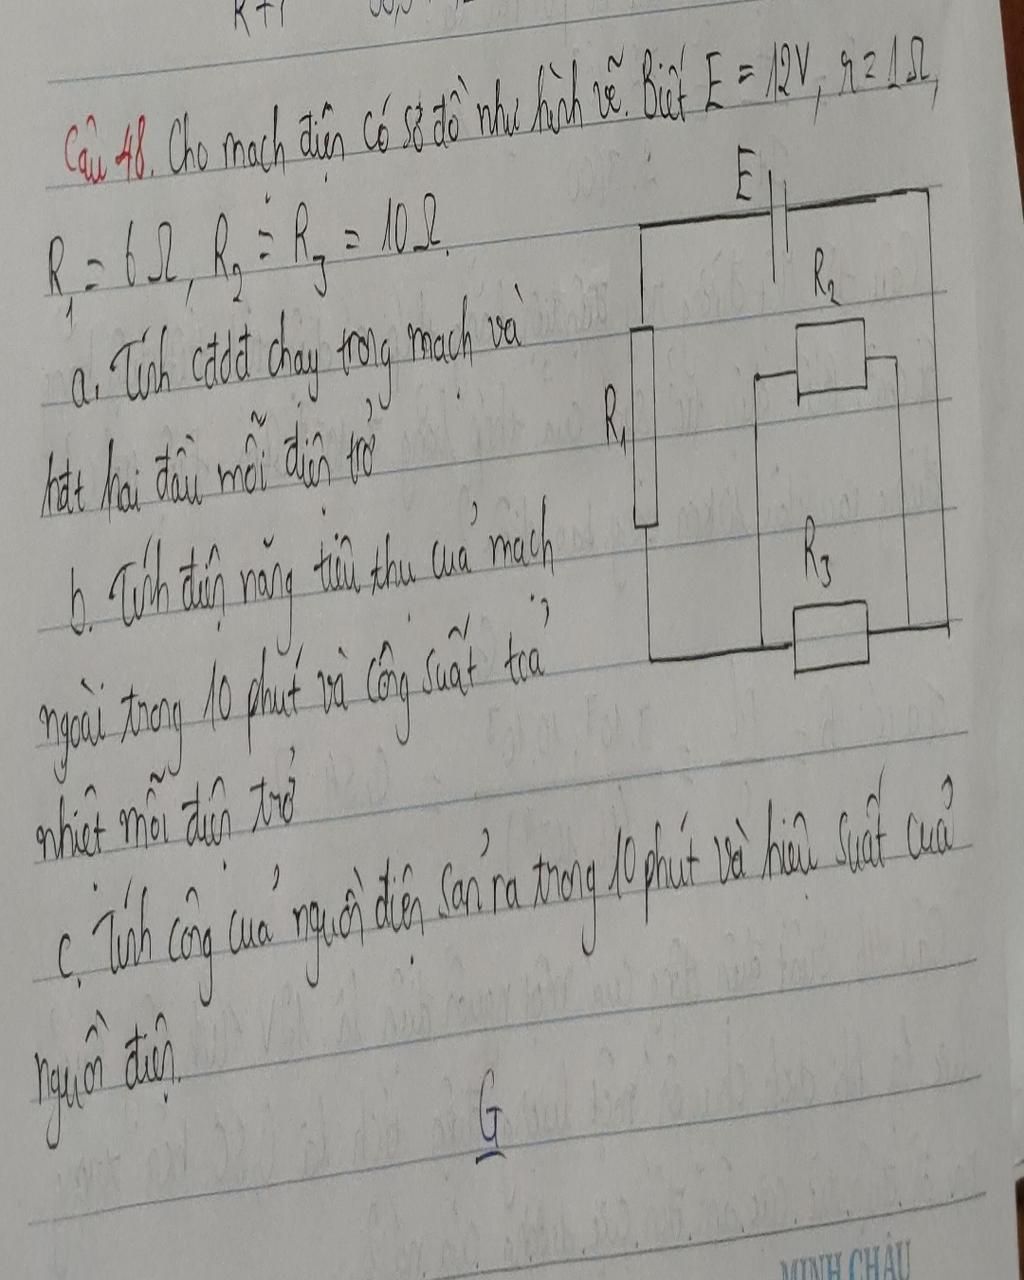 R+r
Câu 48. Cho mạch điện có sơ đồ như hình vẽ. Biết E = 12V, r = 1Ω,
R₁ = 6Ω, R₂ = R₃ = 10Ω.
E
R₂
a. Tính cđdđ chạy trong mạch và
R₁
hđt hai đầu mỗi điện trở
R₃
b. Tính điện năng tiêu thụ của mạch
ngoài trong 10 phút và công suất toả
nhiệt mỗi điện trở
c. Tính công của nguồn điện sản ra trong 10 phút và hiệu suất của
nguồn điện.
G
MINH CHÂU